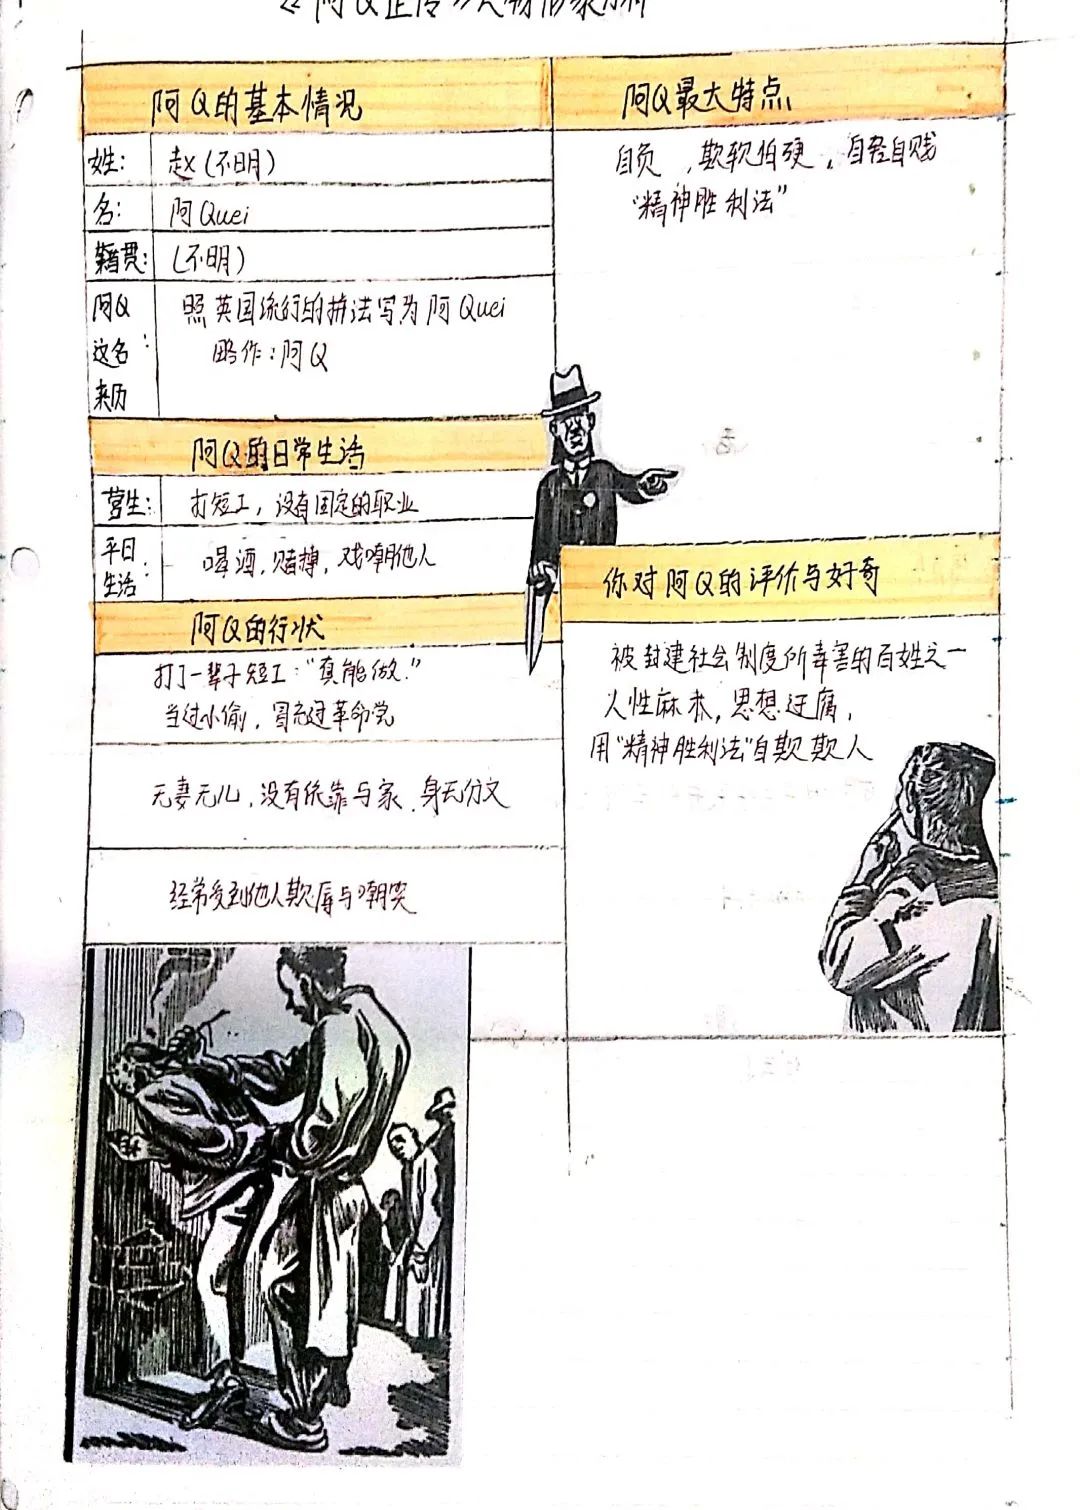 《阿Q正传》人物形象分析
阿Q的基本情况
姓: 赵(不明)
名: 阿Quei
籍贯: (不明)
阿Q
这名:
来历
照英国流行的拼法写为阿Quei
略作:阿Q
阿Q的日常生活
营生: 打短工,没有固定的职业
平日
生活:
喝酒,赌博,戏嘲他人
阿Q的行状
打了一辈子短工:“真能做.”
当过小偷,冒充过革命党
无妻无儿,没有依靠与家.身无分文
经常受到他人欺辱与嘲笑
阿Q最大特点
自负,欺软怕硬,自轻自贱
“精神胜利法”
你对阿Q的评价与好奇
被封建社会制度所毒害的百姓之一
人性麻木,思想迂腐,
用“精神胜利法”自欺欺人